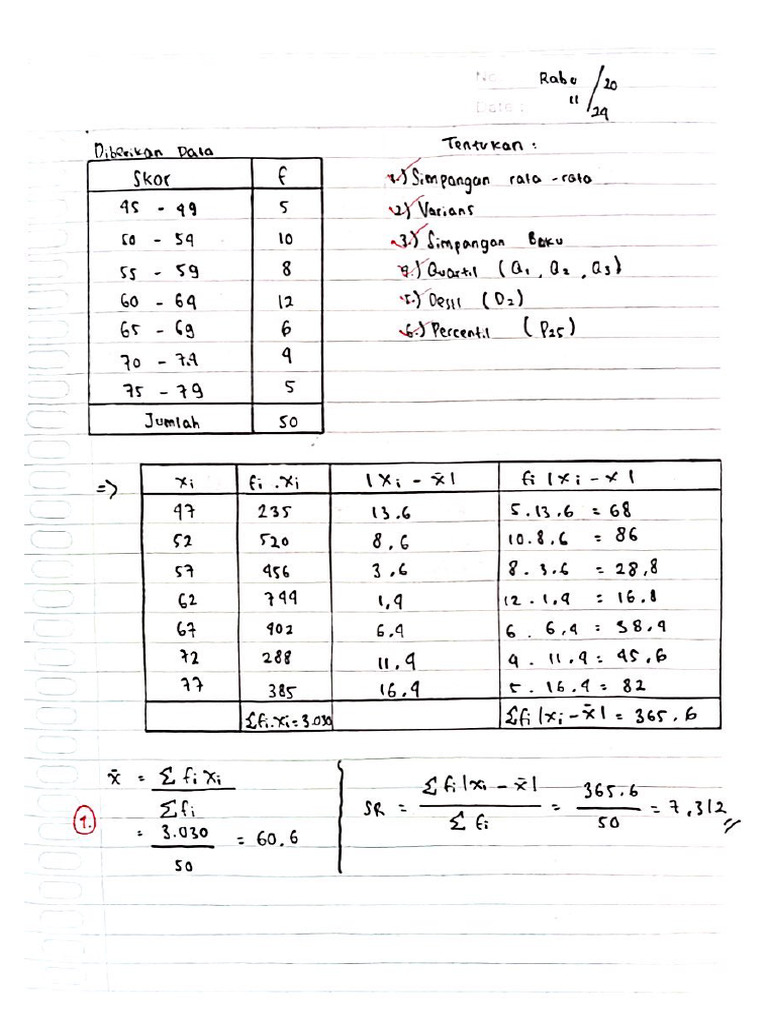 No: Rabu / 20
Date: 11 / 24
Diberikan Data
Skor f
45 - 49 5
50 - 54 10
55 - 59 8
60 - 64 12
65 - 69 6
70 - 74 4
75 - 79 5
Jumlah 50
Tentukan :
1.) Simpangan rata - rata
2.) Varians
3.) Simpangan Baku
4.) Quartil (Q1, Q2, Q3)
5.) Desil (D2)
6.) Percentil (P25)
=>
xi fi . xi |xi - x̄| fi |xi - x|
47 235 13.6 5 . 13.6 = 68
52 520 8,6 10 . 8,6 = 86
57 456 3,6 8 . 3.6 = 28,8
62 744 1,4 12 . 1,4 = 16.8
67 402 6,4 6 . 6,4 = 38.4
72 288 11,4 4 . 11,4 = 45,6
77 385 16,4 5 . 16,4 = 82
Σfi.xi = 3.030 Σfi |xi - x̄| = 365.6
1.
x̄ = Σ fi xi / Σ fi
= 3.030 / 50 = 60,6
SR = Σ fi |xi - x̄| / Σ fi = 365.6 / 50 = 7,312 //